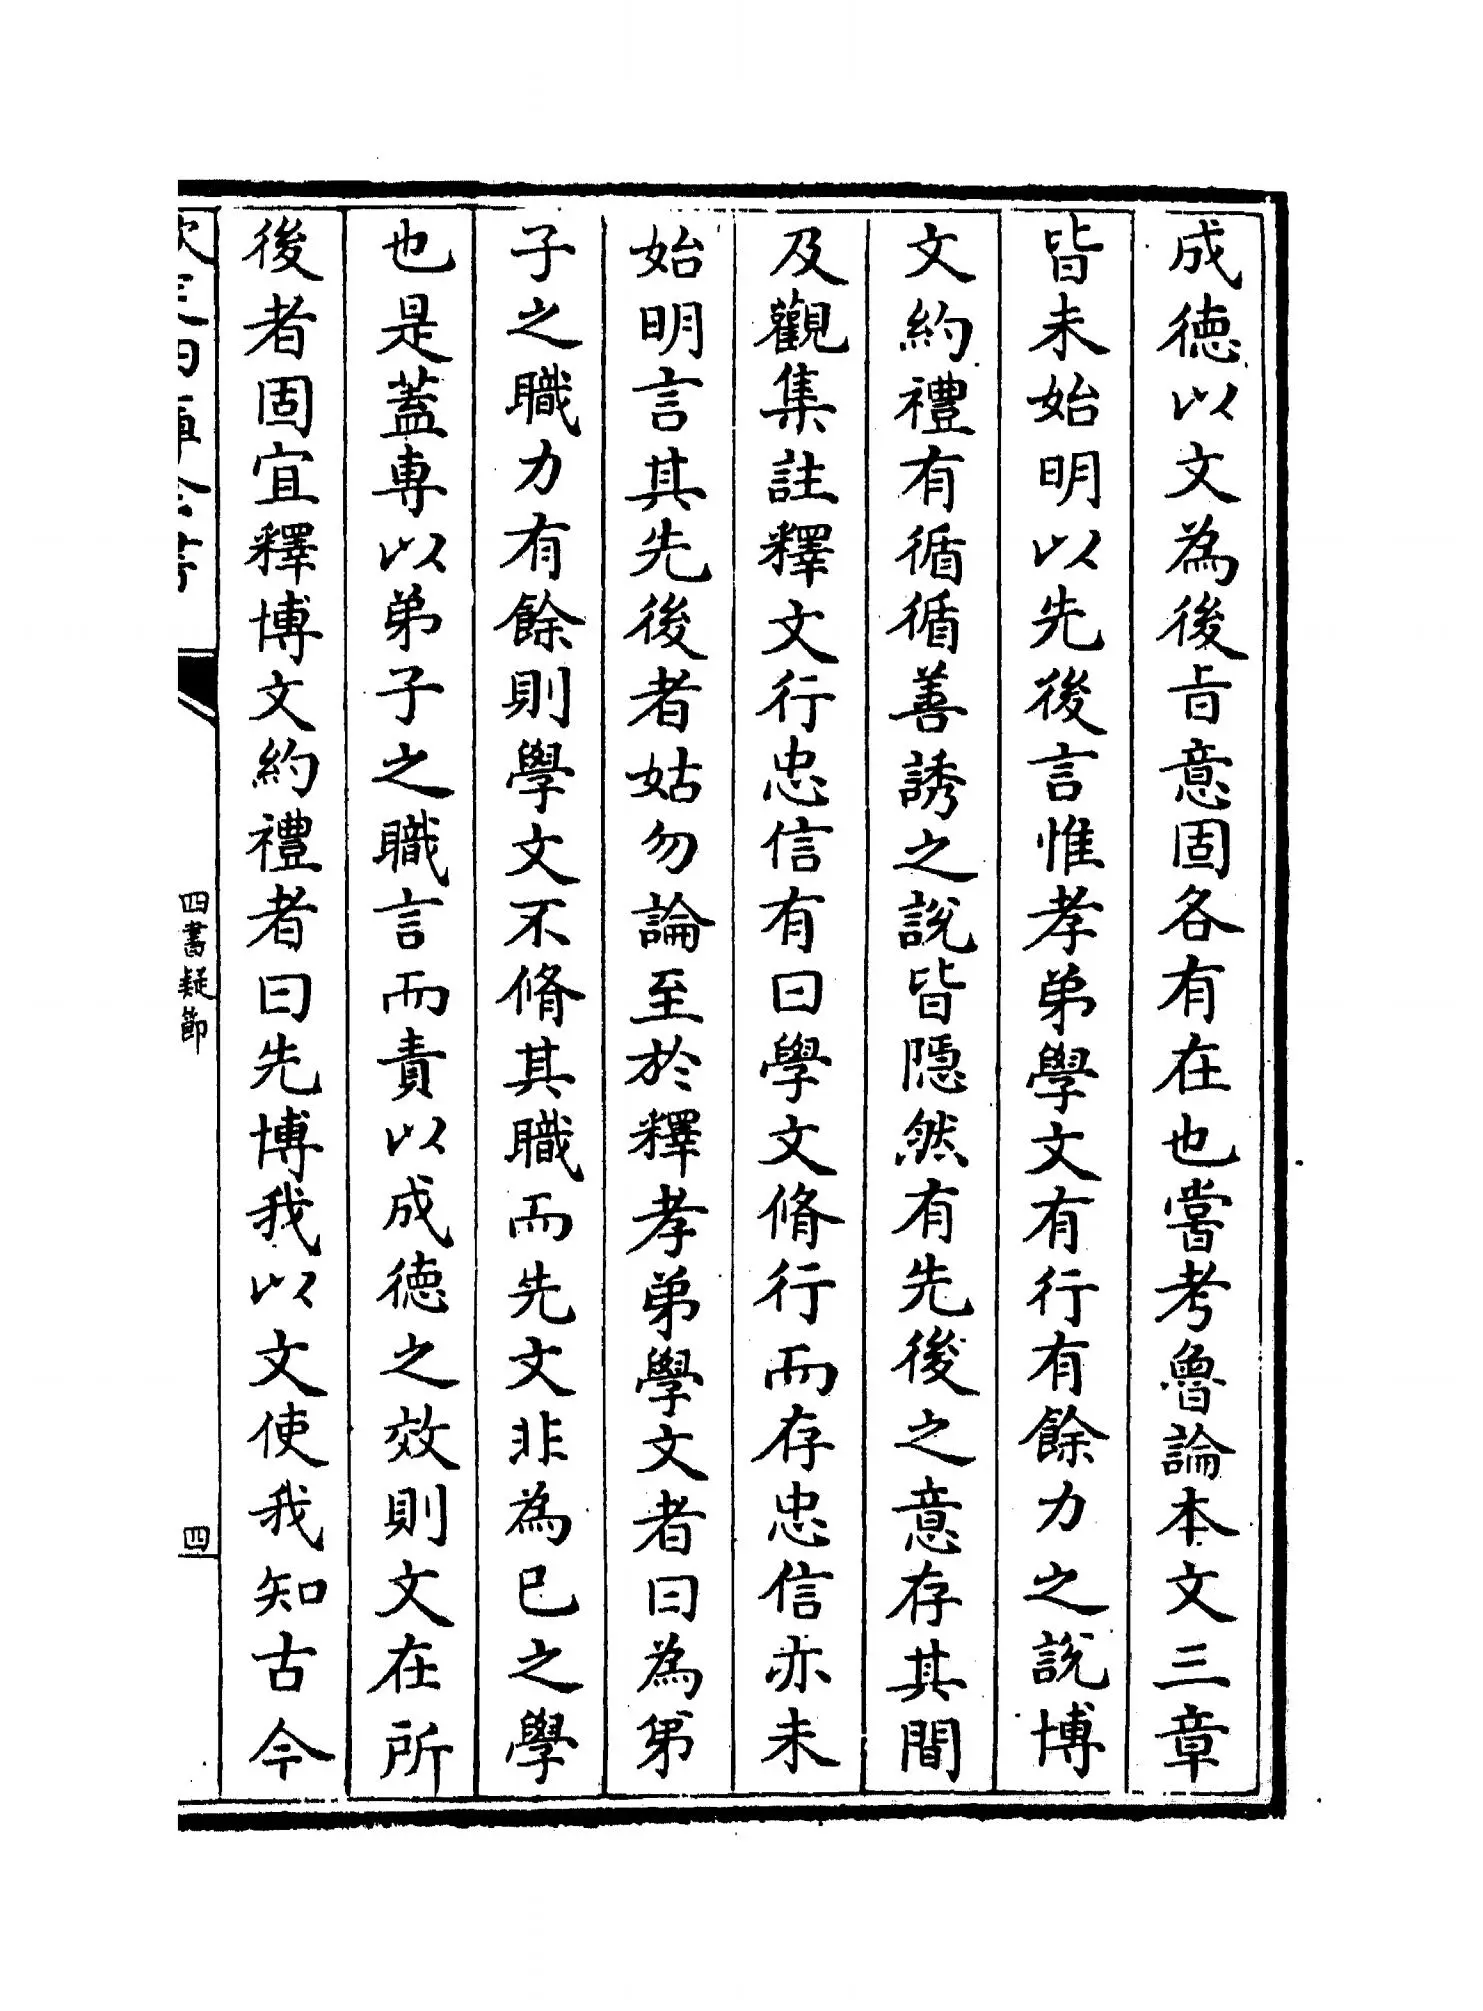 成徳以文為後㫖意固各有在也嘗考魯論本文三章
皆未始明以先後言惟孝弟學文有行有餘力之說博
文約禮有循循善誘之說皆隠然有先後之意存其間
及觀集註釋文行忠信有曰學文脩行而存忠信亦未
始明言其先後者姑勿論至於釋孝弟學文者曰為弟
子之職力有餘則學文不脩其職而先文非為已之學
也是蓋專以弟子之職言而責以成徳之效則文在所
後者固宜釋博文約禮者曰先博我以文使我知古今
欽定四庫全書
四書疑節
四